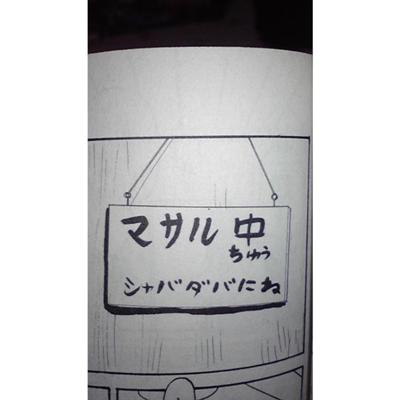 マサル 中
ちゅう
シャバダバにね